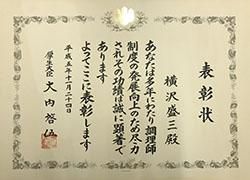 表彰状
横沢盛三殿
あなたは多年にわたり調理師
制度の発展向上のため尽力
されその功績は誠に顕著で
あります
よってここに表彰します
平成五年十一月二十四日
厚生大臣 大内啓伍